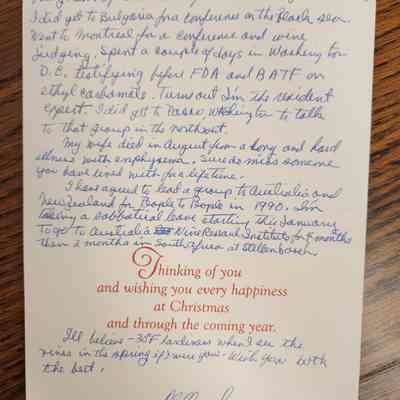 I did get to Bulgaria for a conference on the Black Sea.
Went to Montreal for a conference and wine
judging. Spent a couple of days in Washington
D.C. testifying before FDA and BATF on
ethyl carbamate. Turns out I'm the resident
expert. I did get to Pasco, Washington to talk
to that group in the northwest.
My wife died in August from a long and hard
illness with emphysema. Sure do miss someone
you have lived with for a lifetime.
I have agreed to lead a group to Australia and
New Zealand for People to People in 1990. I'm
taking a sabbatical leave starting this January
to go to Australia Wine Research Institute for 4 months
then 2 months in South Africa at Stellenbosch
Thinking of you
and wishing you every happiness
at Christmas
and through the coming year.
I'll believe -35F hardiness when I see the
vines in the spring if I were you. Wish you both
the best.